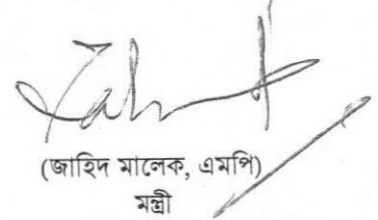 (জাহিদ মালেক, এমপি)
মন্ত্রী